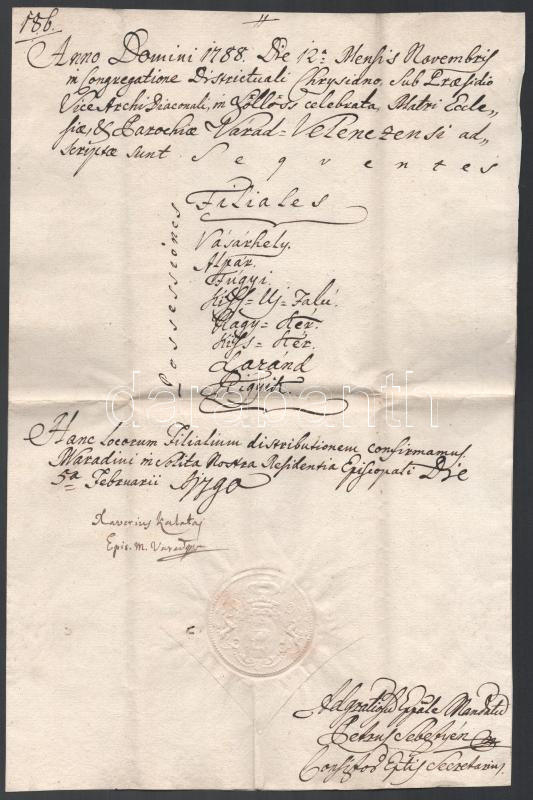 186.
Anno Domini 1788. Die 12a Mensis Novembris
in Congregatione Districtuali Chrysiano, sub Præsidio
Vice Archi Diaconali, in Söllöss celebrata, Matri Eccle„
siæ, & Parochiæ Varad=Velenczensi ad„
scriptæ sunt Seqventes
Possessiones
Filiales
Vásárhely.
Alpár.
Fúgyi.
Kiss=Uj=Falú.
Nagy=Kér.
Kiss=Kér.
Loránd
darabanth
Hanc locorum Filialium distributionem confirmamus.
Waradini in solita Nostra Residentia Episcopali Die
5a Februarii 1790
Xaverius Kalatay
Epis. M. Varad
Ad gratiosu Eppale Mandatu
Petrus Sebestyén
Secretarius.